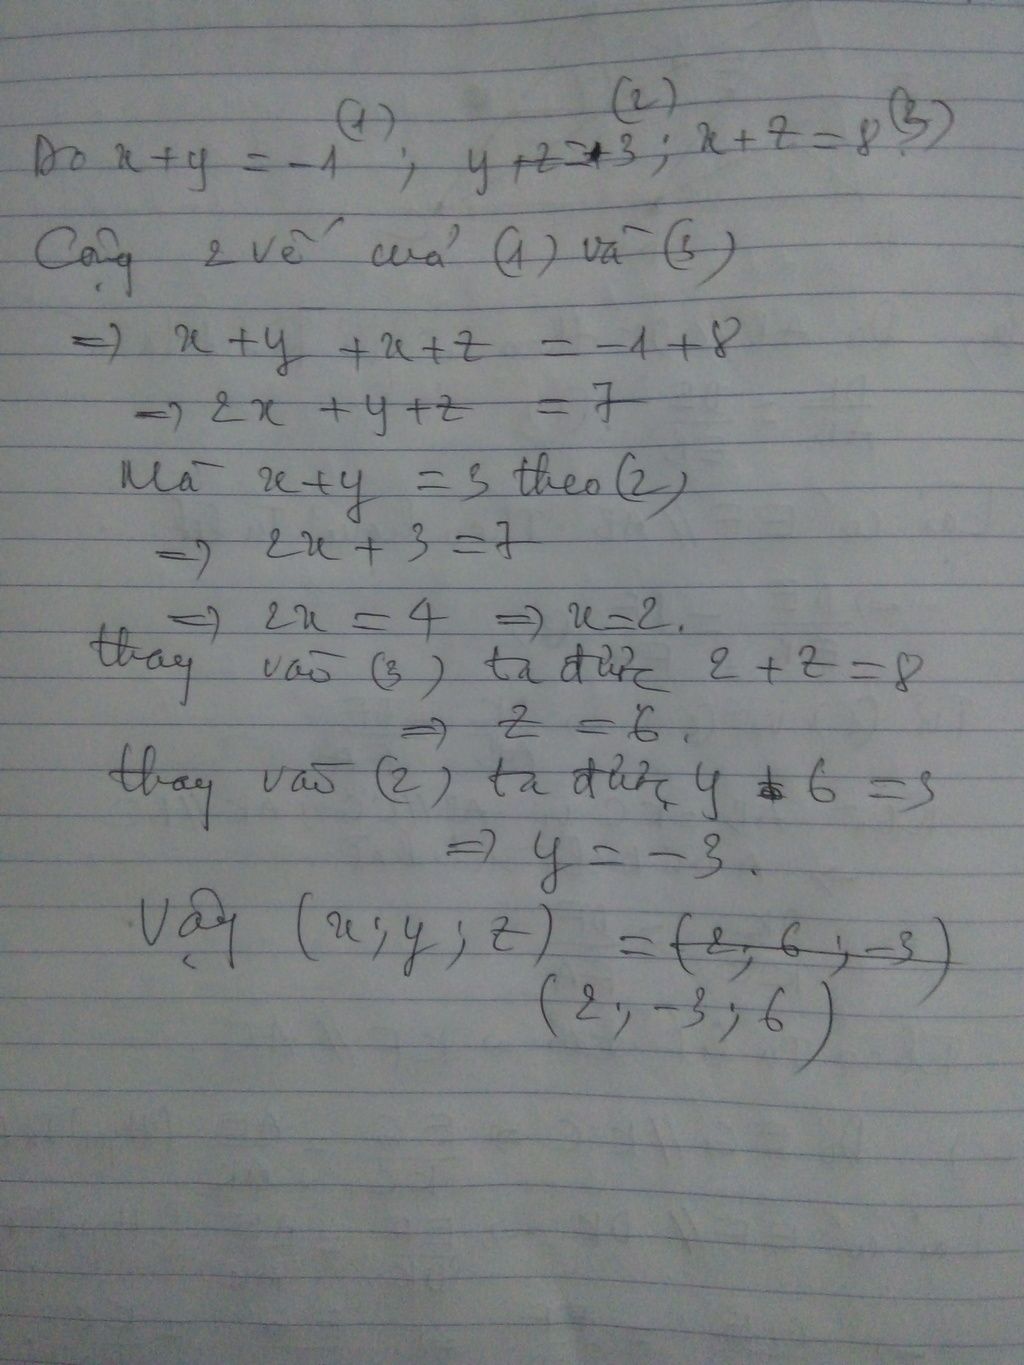 Do x + y = -1 (1) ; y + z = +3 (2) ; x + z = 8 (3)
Cộng 2 vế của (1) và (3)
=> x + y + x + z = -1 + 8
=> 2x + y + z = 7
Mà x + y = 3 theo (2)
=> 2x + 3 = 7
=> 2x = 4 => x = 2.
thay vào (3) ta được 2 + z = 8
=> z = 6.
thay vào (2) ta được y + 6 = 3
=> y = -3.
Vậy (x ; y ; z) = (2 ; 6 ; -3)
(2 ; -3 ; 6)